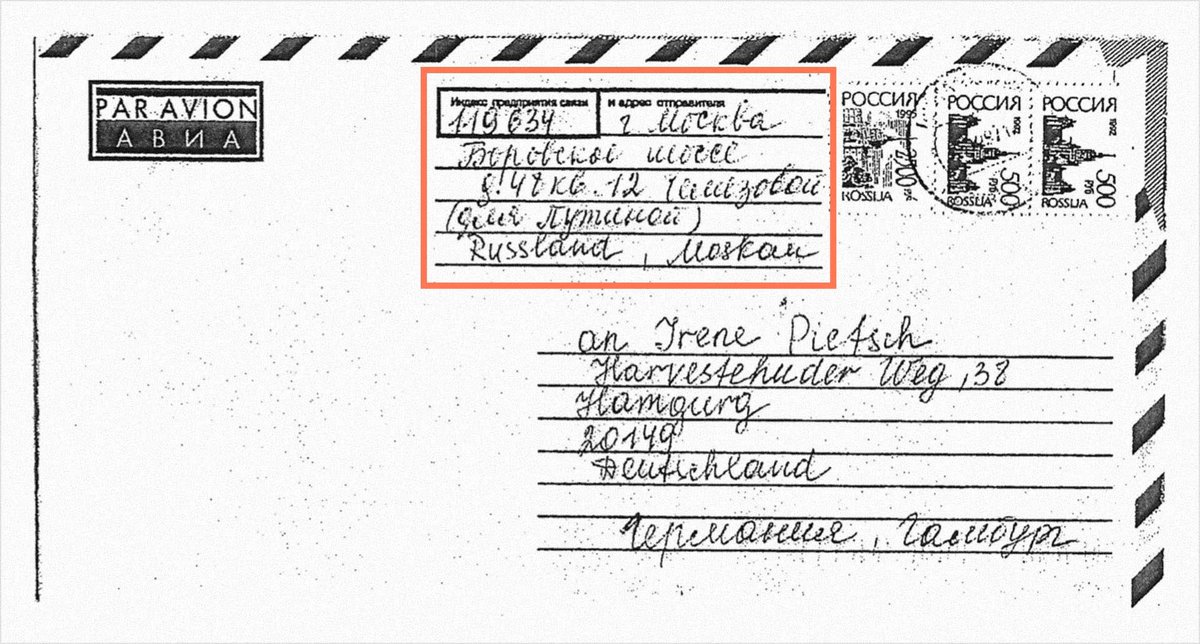 PAR AVION
АВИА
Индекс предприятия связи и адрес отправителя
119634 г Москва
Боровское шоссе
д.48 кв.12 Чемезовой
(для Путиной)
Russland, Moskau
РОССИЯ
1995
2000
ROSSIJA
РОССИЯ
1992
500
РУБ
ROSSIJA
РОССИЯ
1992
500
РУБ
ROSSIJA
an Irene Pietsch
Harvestehuder Weg, 38
Hamgurg
20149
Deutschland
Германия, Гамбург